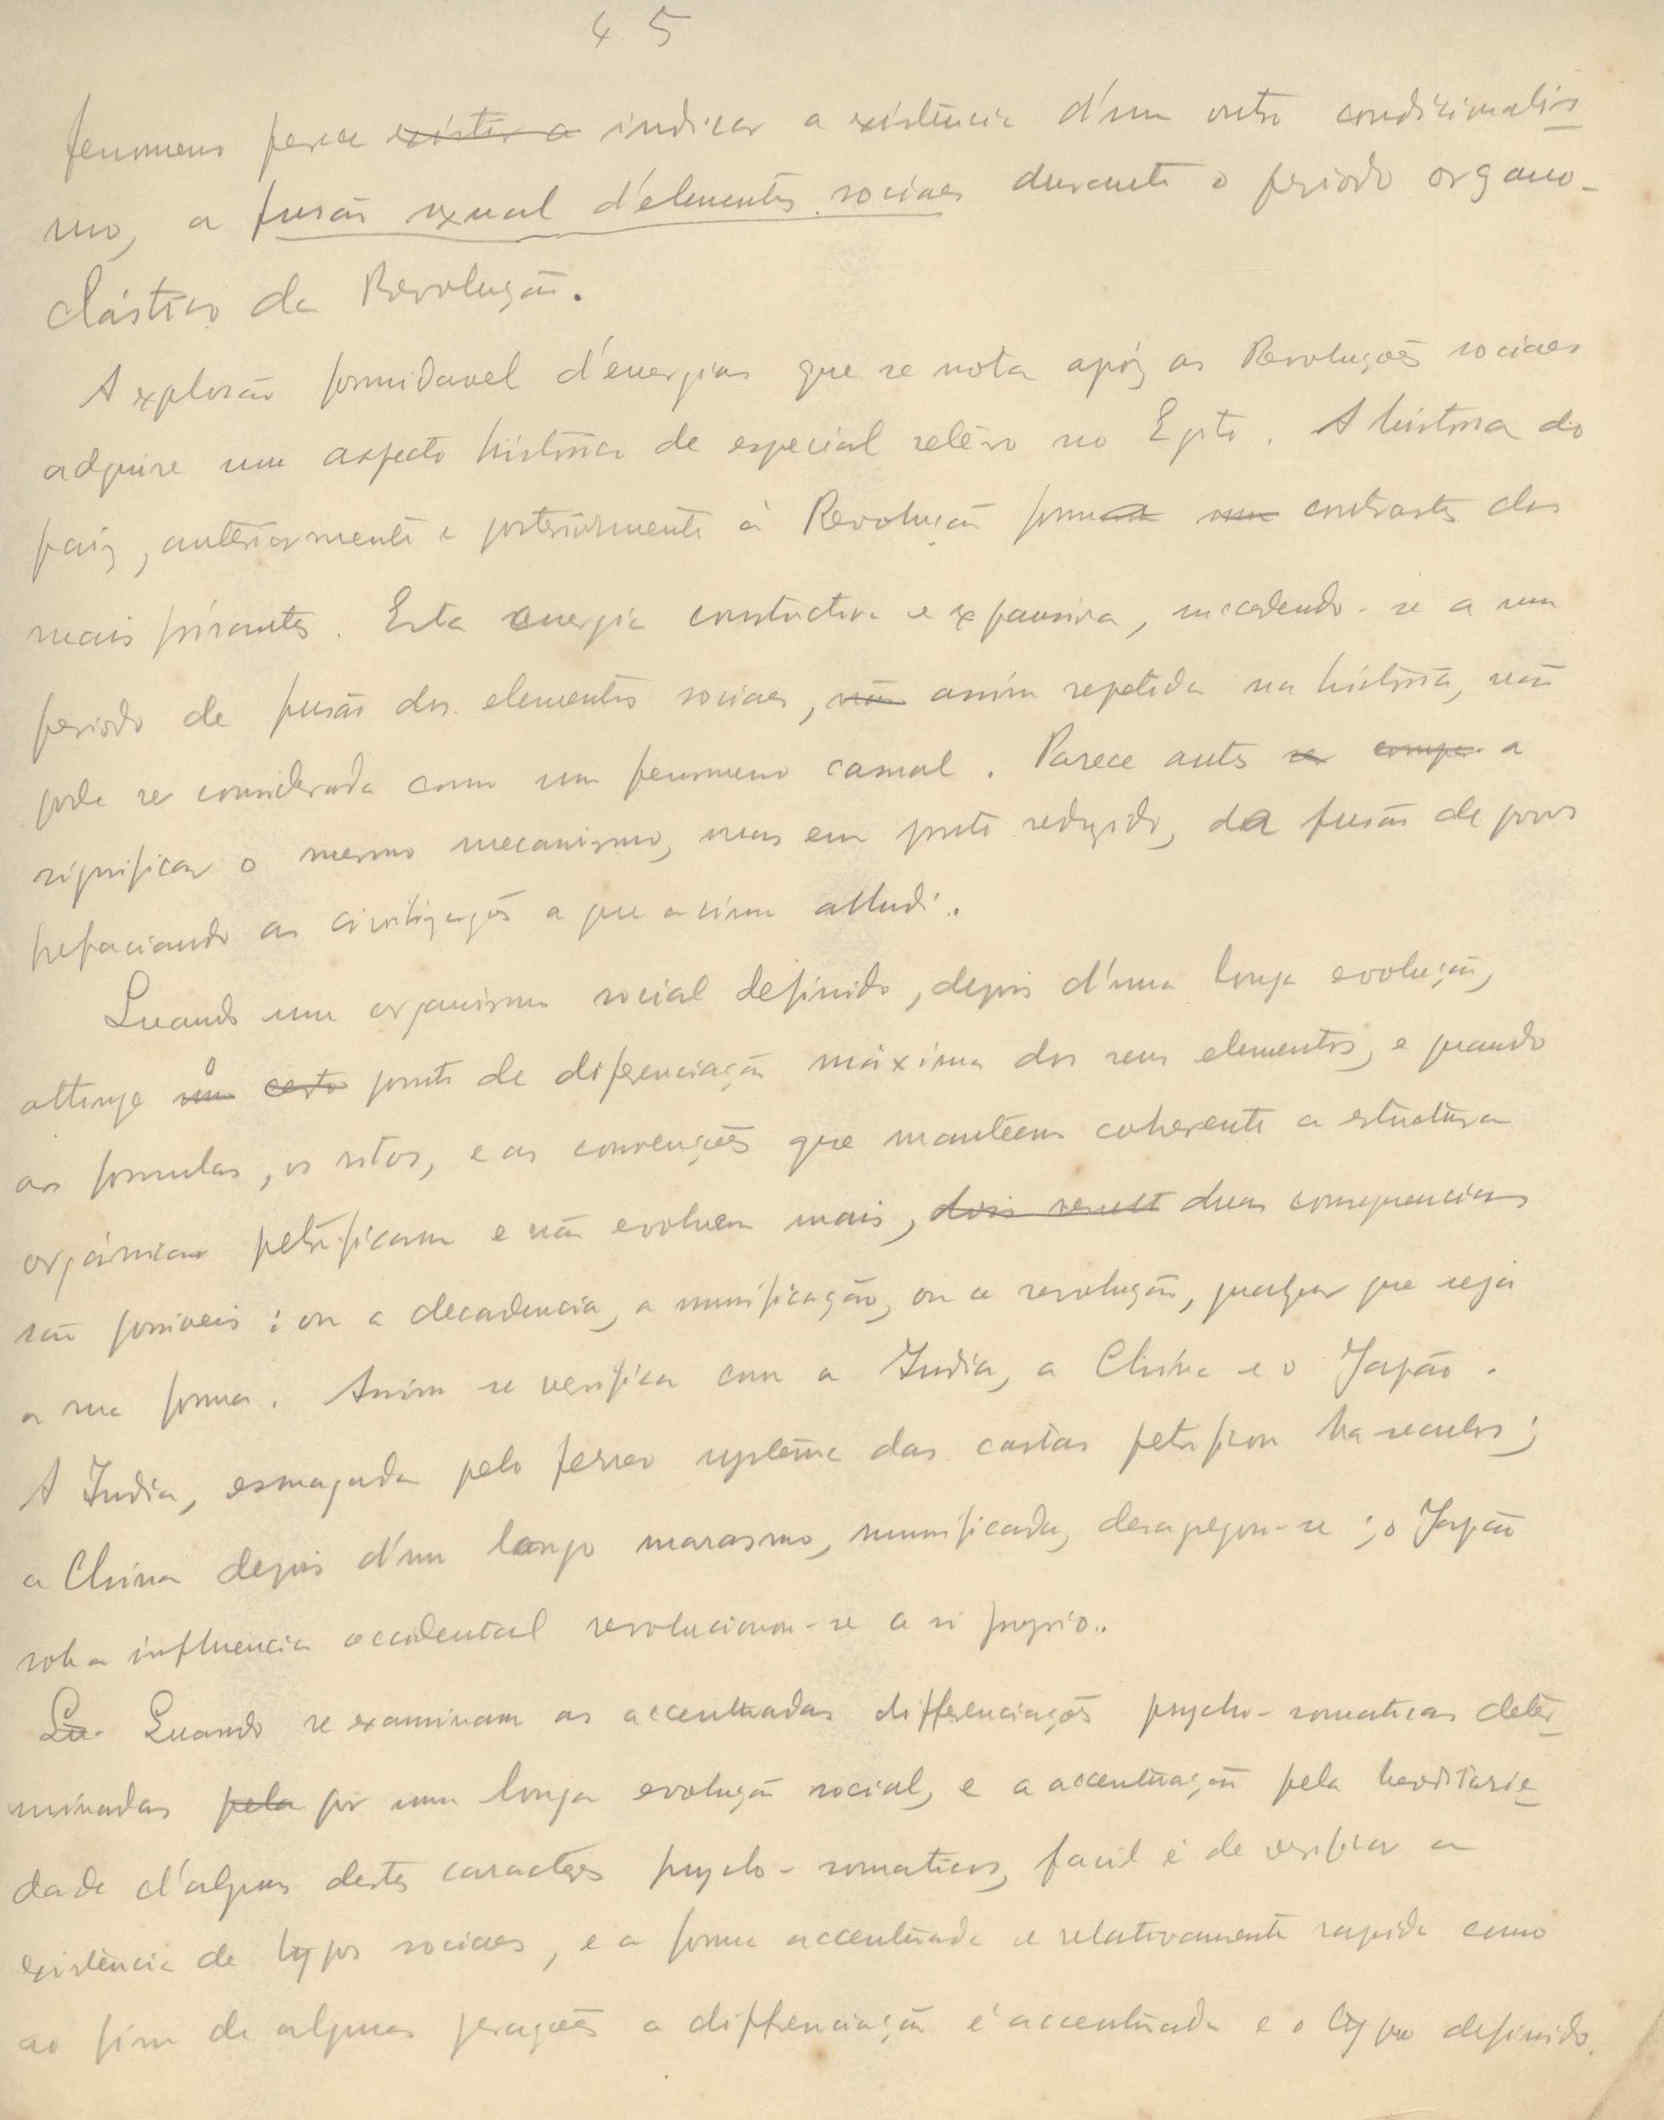 45
fenomeno parece existir a indicar a existência d'um outro condicionalis
mo, a fusão sexual d'elementos sociaes durante o periodo organo-
clástico da Revolução.
A explosão formidavel d'energias que se nota após as Revoluções sociaes
adquire um aspecto histórico de especial relêvo no Egito. A história do
paiz, anteriormente e posteriormente á Revolução forma um contrastes dos
mais frisantes. Esta energia constructiva e expansiva, succedendo-se a um
periodo de fusão dos elementos sociaes, não assim repetida na história, não
pode ser considerada como um fenomeno casual. Parece antes se compa a
significar o mesmo mecanismo, mas em ponto reduzido, da fusão de povos
prefaciando as civilizações a que acima alludi.
Quando um organismo social definido, depois d'uma longa evolução,
attinge um o certo ponto de diferenciação máxima dos seus elementos, e quando
as formulas, os ritos, e as convenções que mantéem coherente a estructura
orgánica petrificam e não evoluem mais, dois result duas consequencias
são possiveis: ou a decadencia, a mumificação, ou a revolução, qualquer que seja
a sua forma. Assim se verifica com a India, a China e o Japão.
A India, esmagada pelo ferreo systema das castas petrificou ha seculos;
a China depois d'um longo marasmo, mumificada, desagregou-se; o Japão
sob a influencia occidental revolucionou-se a si proprio..
Qu. Quando se examinam as accentuadas differenciações psycho-somaticas deter
minadas pela por uma longa evolução social, e a accentuação pela heditarie
dade d'alguns destes caracteres psycho-somaticos, facil é de verificar a
existência de typos sociaes, e a forma accentuada e relativamente rapida como
ao fim de algumas gerações a differenciação é accentuada e o typo definido.